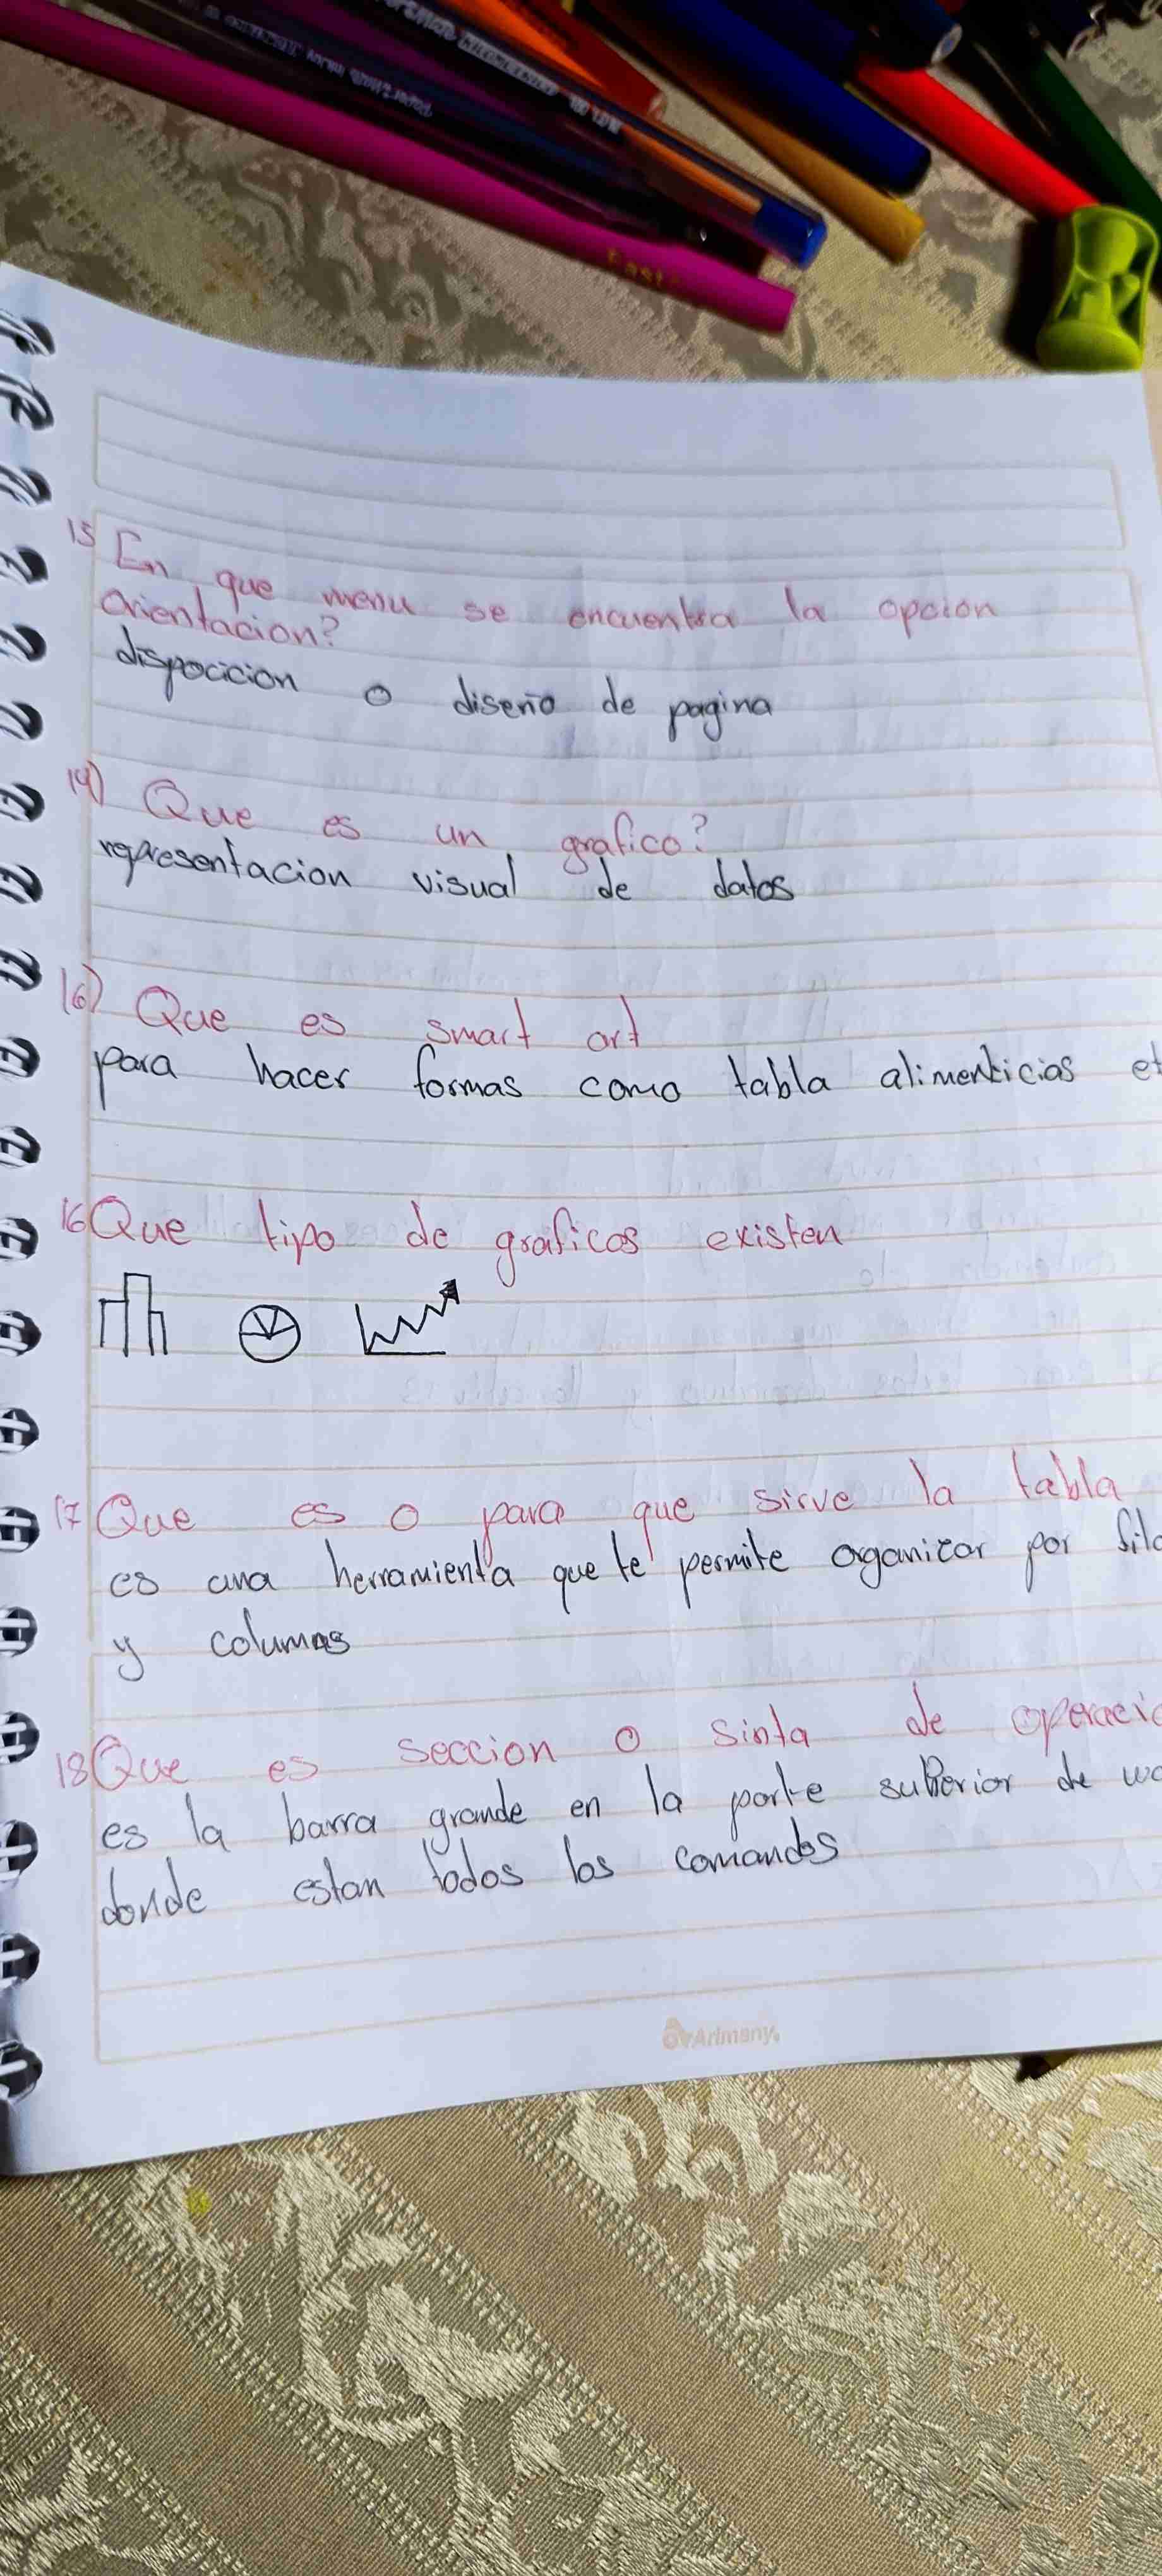 Kilometrico
PaperMate InkJoy
Fast
15 En que menu se encuentra la opcion
orientacion?
dispocicion o diseño de pagina
14) Que es un grafico?
representacion visual de datos
16) Que es smart art
para hacer formas como tabla alimenticias et
16 Que tipo de graficos existen
17 Que es o para que sirve la tabla
es una herramienta que te permite oganizar por fila
y columnas
18 Que es seccion o sinta de operacio
es la barra grande en la parte superior de wo
donde estan todos los comandos
Arimany